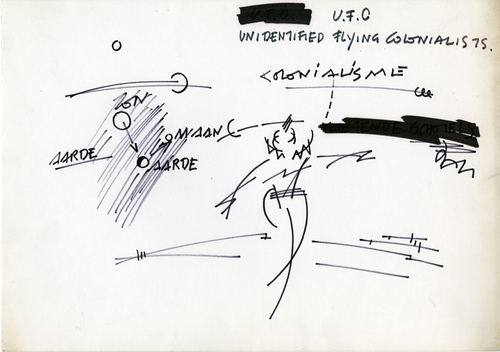 U.F.O
UNIDENTIFIED FLYING COLONIALISTS.
COLONIALISME
ZON
MAAN
AARDE
AARDE